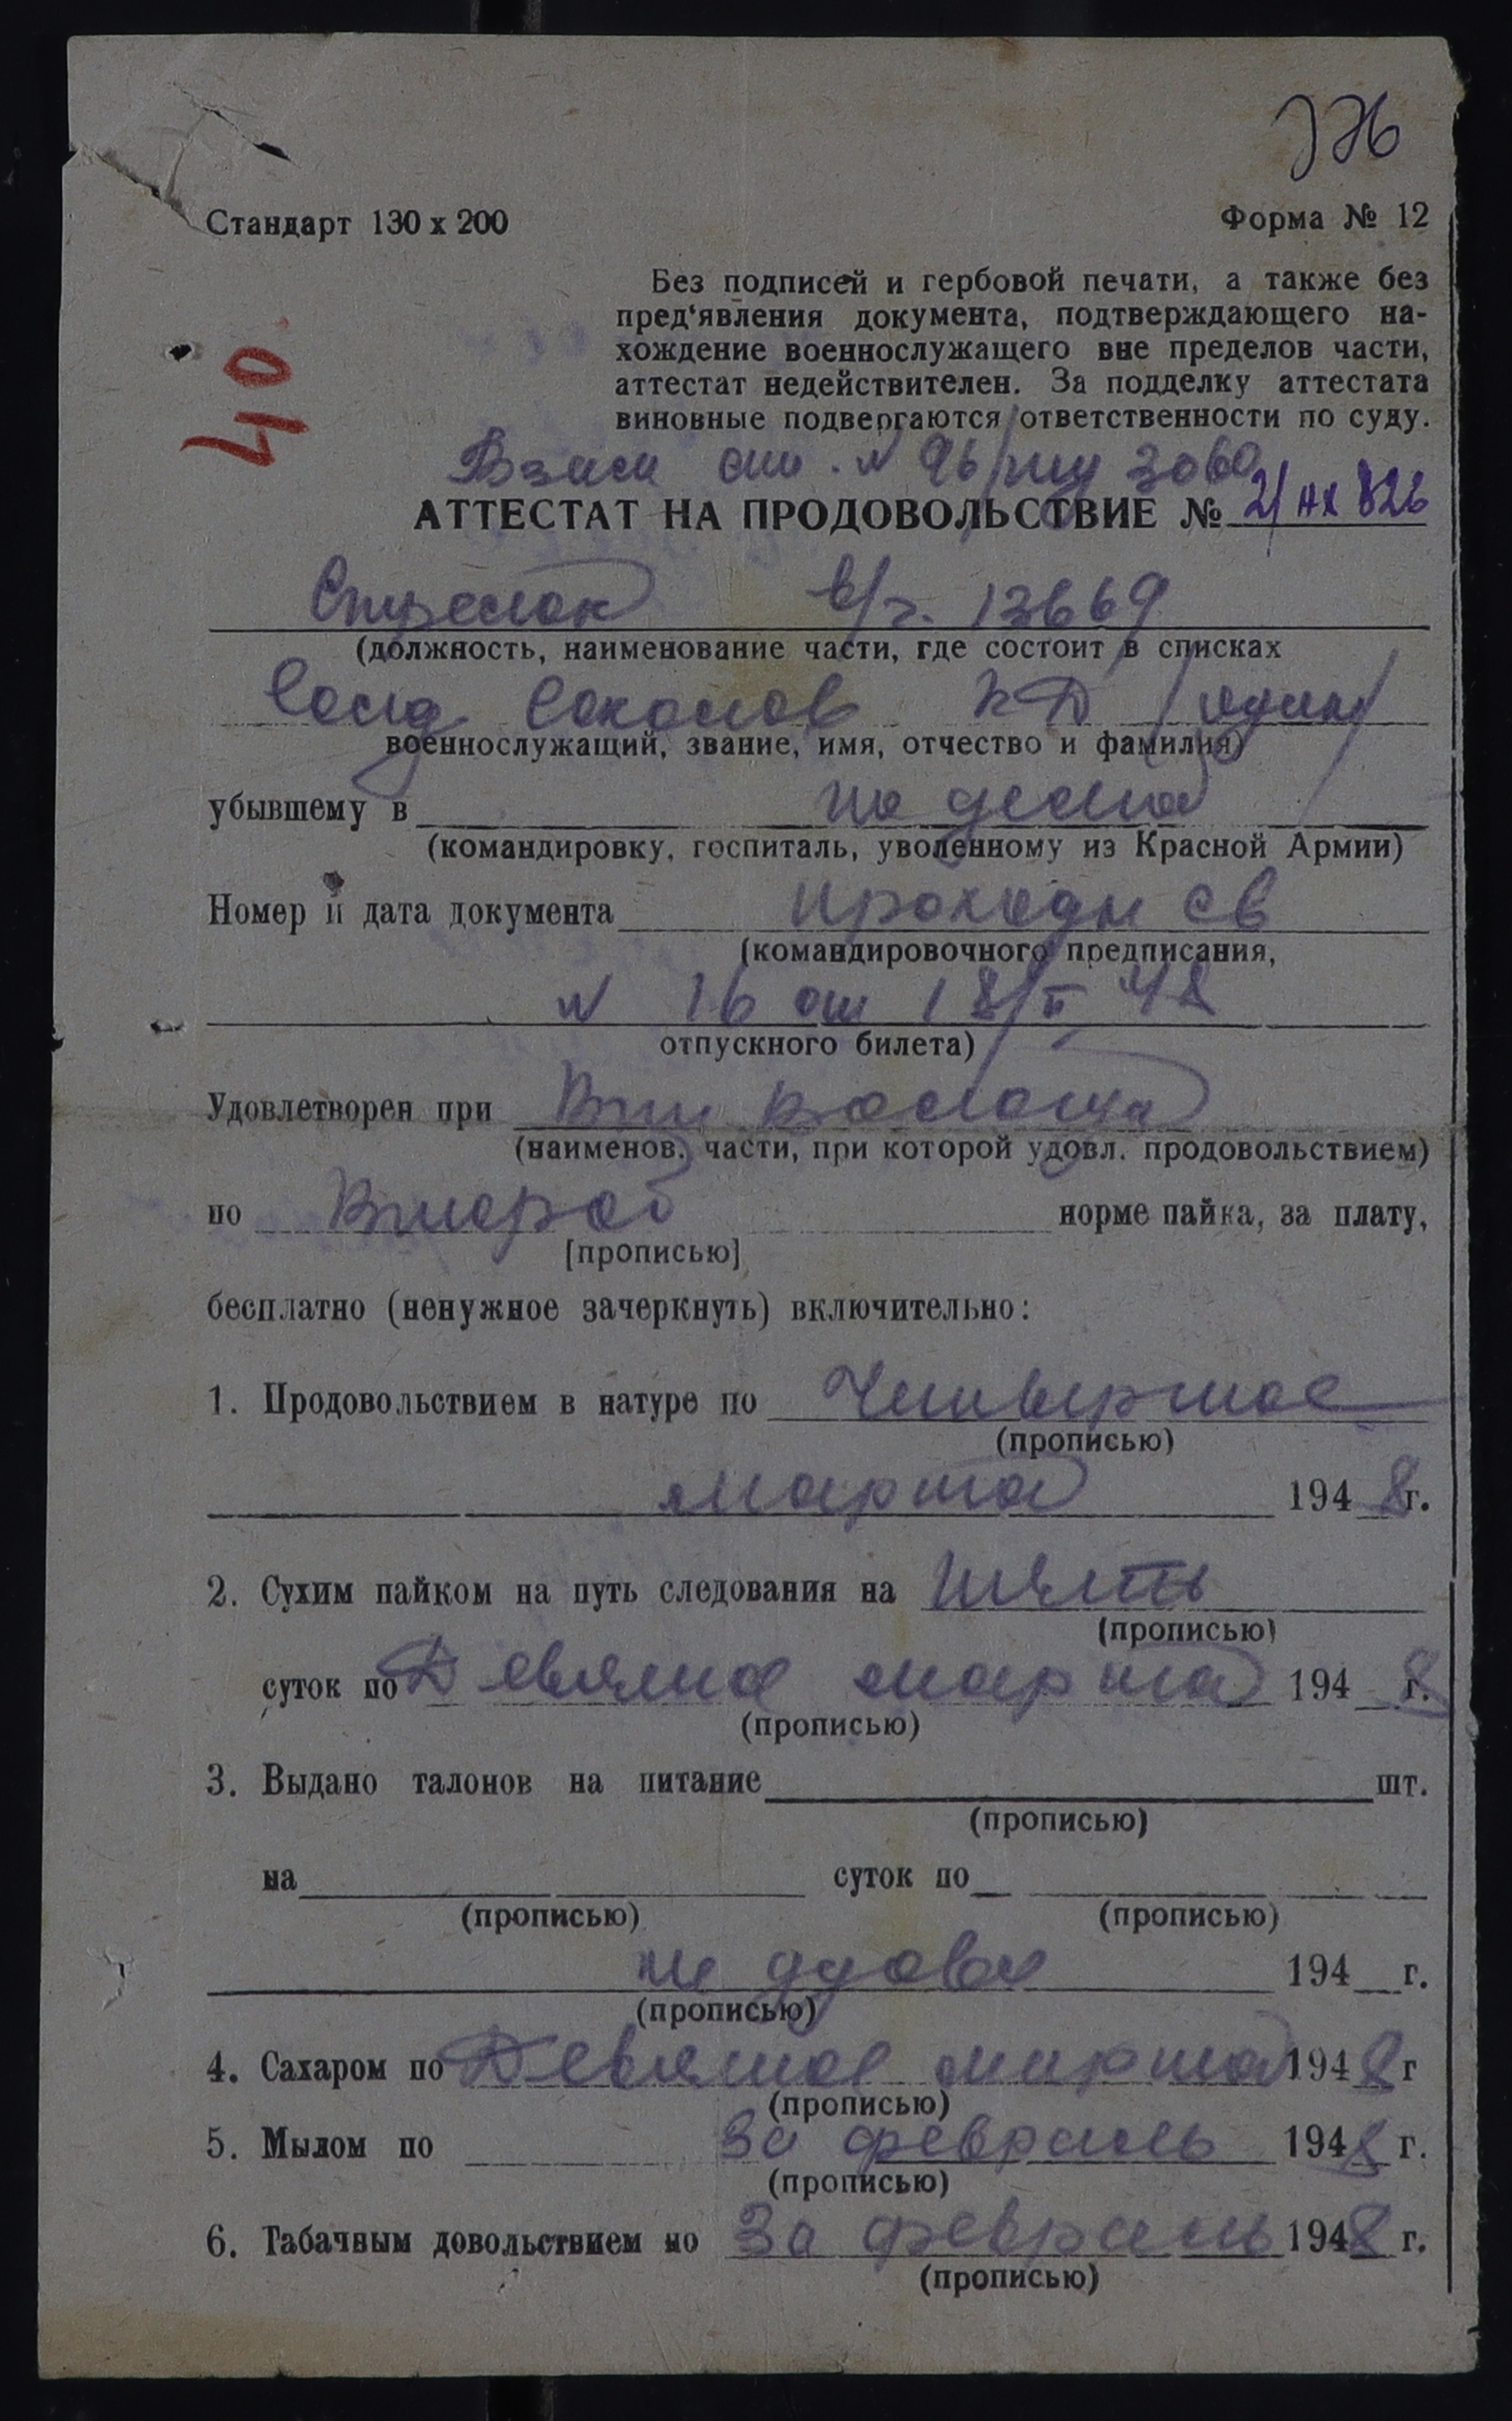 Стандарт 130 х 200
Форма № 12
40
Без подписей и гербовой печати, а также без
пред‘явления документа, подтверждающего на-
хождение военнослужащего вне пределов части,
аттестат недействителен. За подделку аттестата
виновные подвергаются ответственности по суду.
Взаме ат. №
АТТЕСТАТ НА ПРОДОВОЛЬСТВИЕ № 2/ 826
Стрелок в/ч. 13669
(должность, наименование части, где состоит в списках
Солд Соколов КД /один/
военнослужащий, звание, имя, отчество и фамилия)
убывшему в
(командировку, госпиталь, уволенному из Красной Армии)
Номер и дата документа проходн св
(командировочного предписания,
№ 16 от 18/II 48
отпускного билета)
Удовлетворен при
(наименов. части, при которой удовл. продовольствием)
по Второй норме пайка, за плату,
[прописью]
бесплатно (ненужное зачеркнуть) включительно:
1. Продовольствием в натуре по Четвертое
(прописью)
марта 1948 г.
2. Сухим пайком на путь следования на пять
(прописью)
суток по Девятое марта 1948 г.
(прописью)
3. Выдано талонов на питание шт.
(прописью)
на суток по
(прописью) (прописью)
не удовл 194 г.
(прописью)
4. Сахаром по Девятое марта 1948 г
(прописью)
5. Мылом по За февраль 1948 г.
(прописью)
6. Табачным довольствием по За февраль 1948 г.
(прописью)